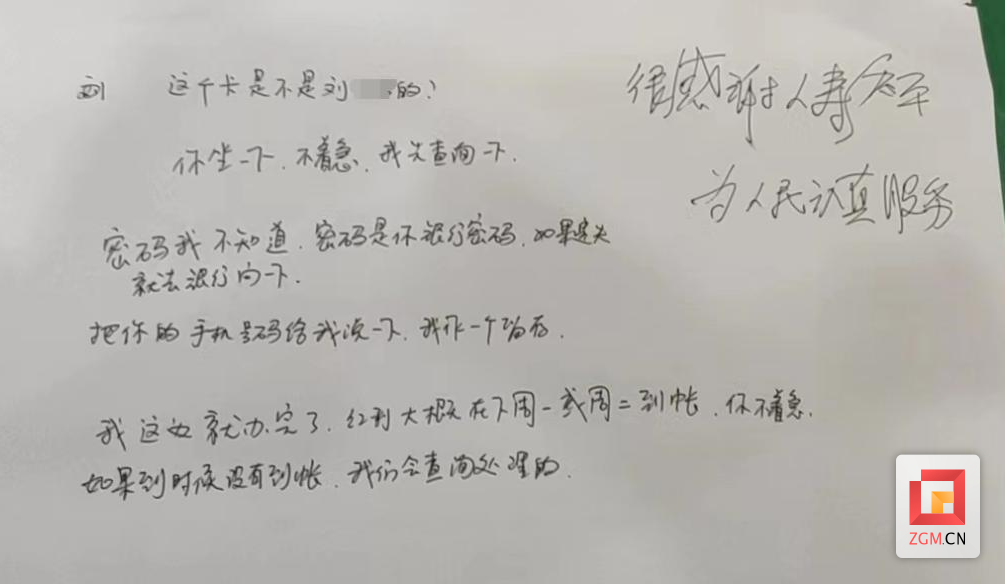 刘 这个卡是不是刘 的?
你坐一下,不着急,我先查询一下.
密码我不知道,密码是你银行密码,如果忘
就去银行问一下.
把你的手机号码给我说一下,我作一个留存.
我这边就办完了,红利大概在下周一或周二到帐,你不着急.
如果到时候没有到帐,我们会查询处理的.
很感谢人寿
为人民认真服务
ZGM.CN